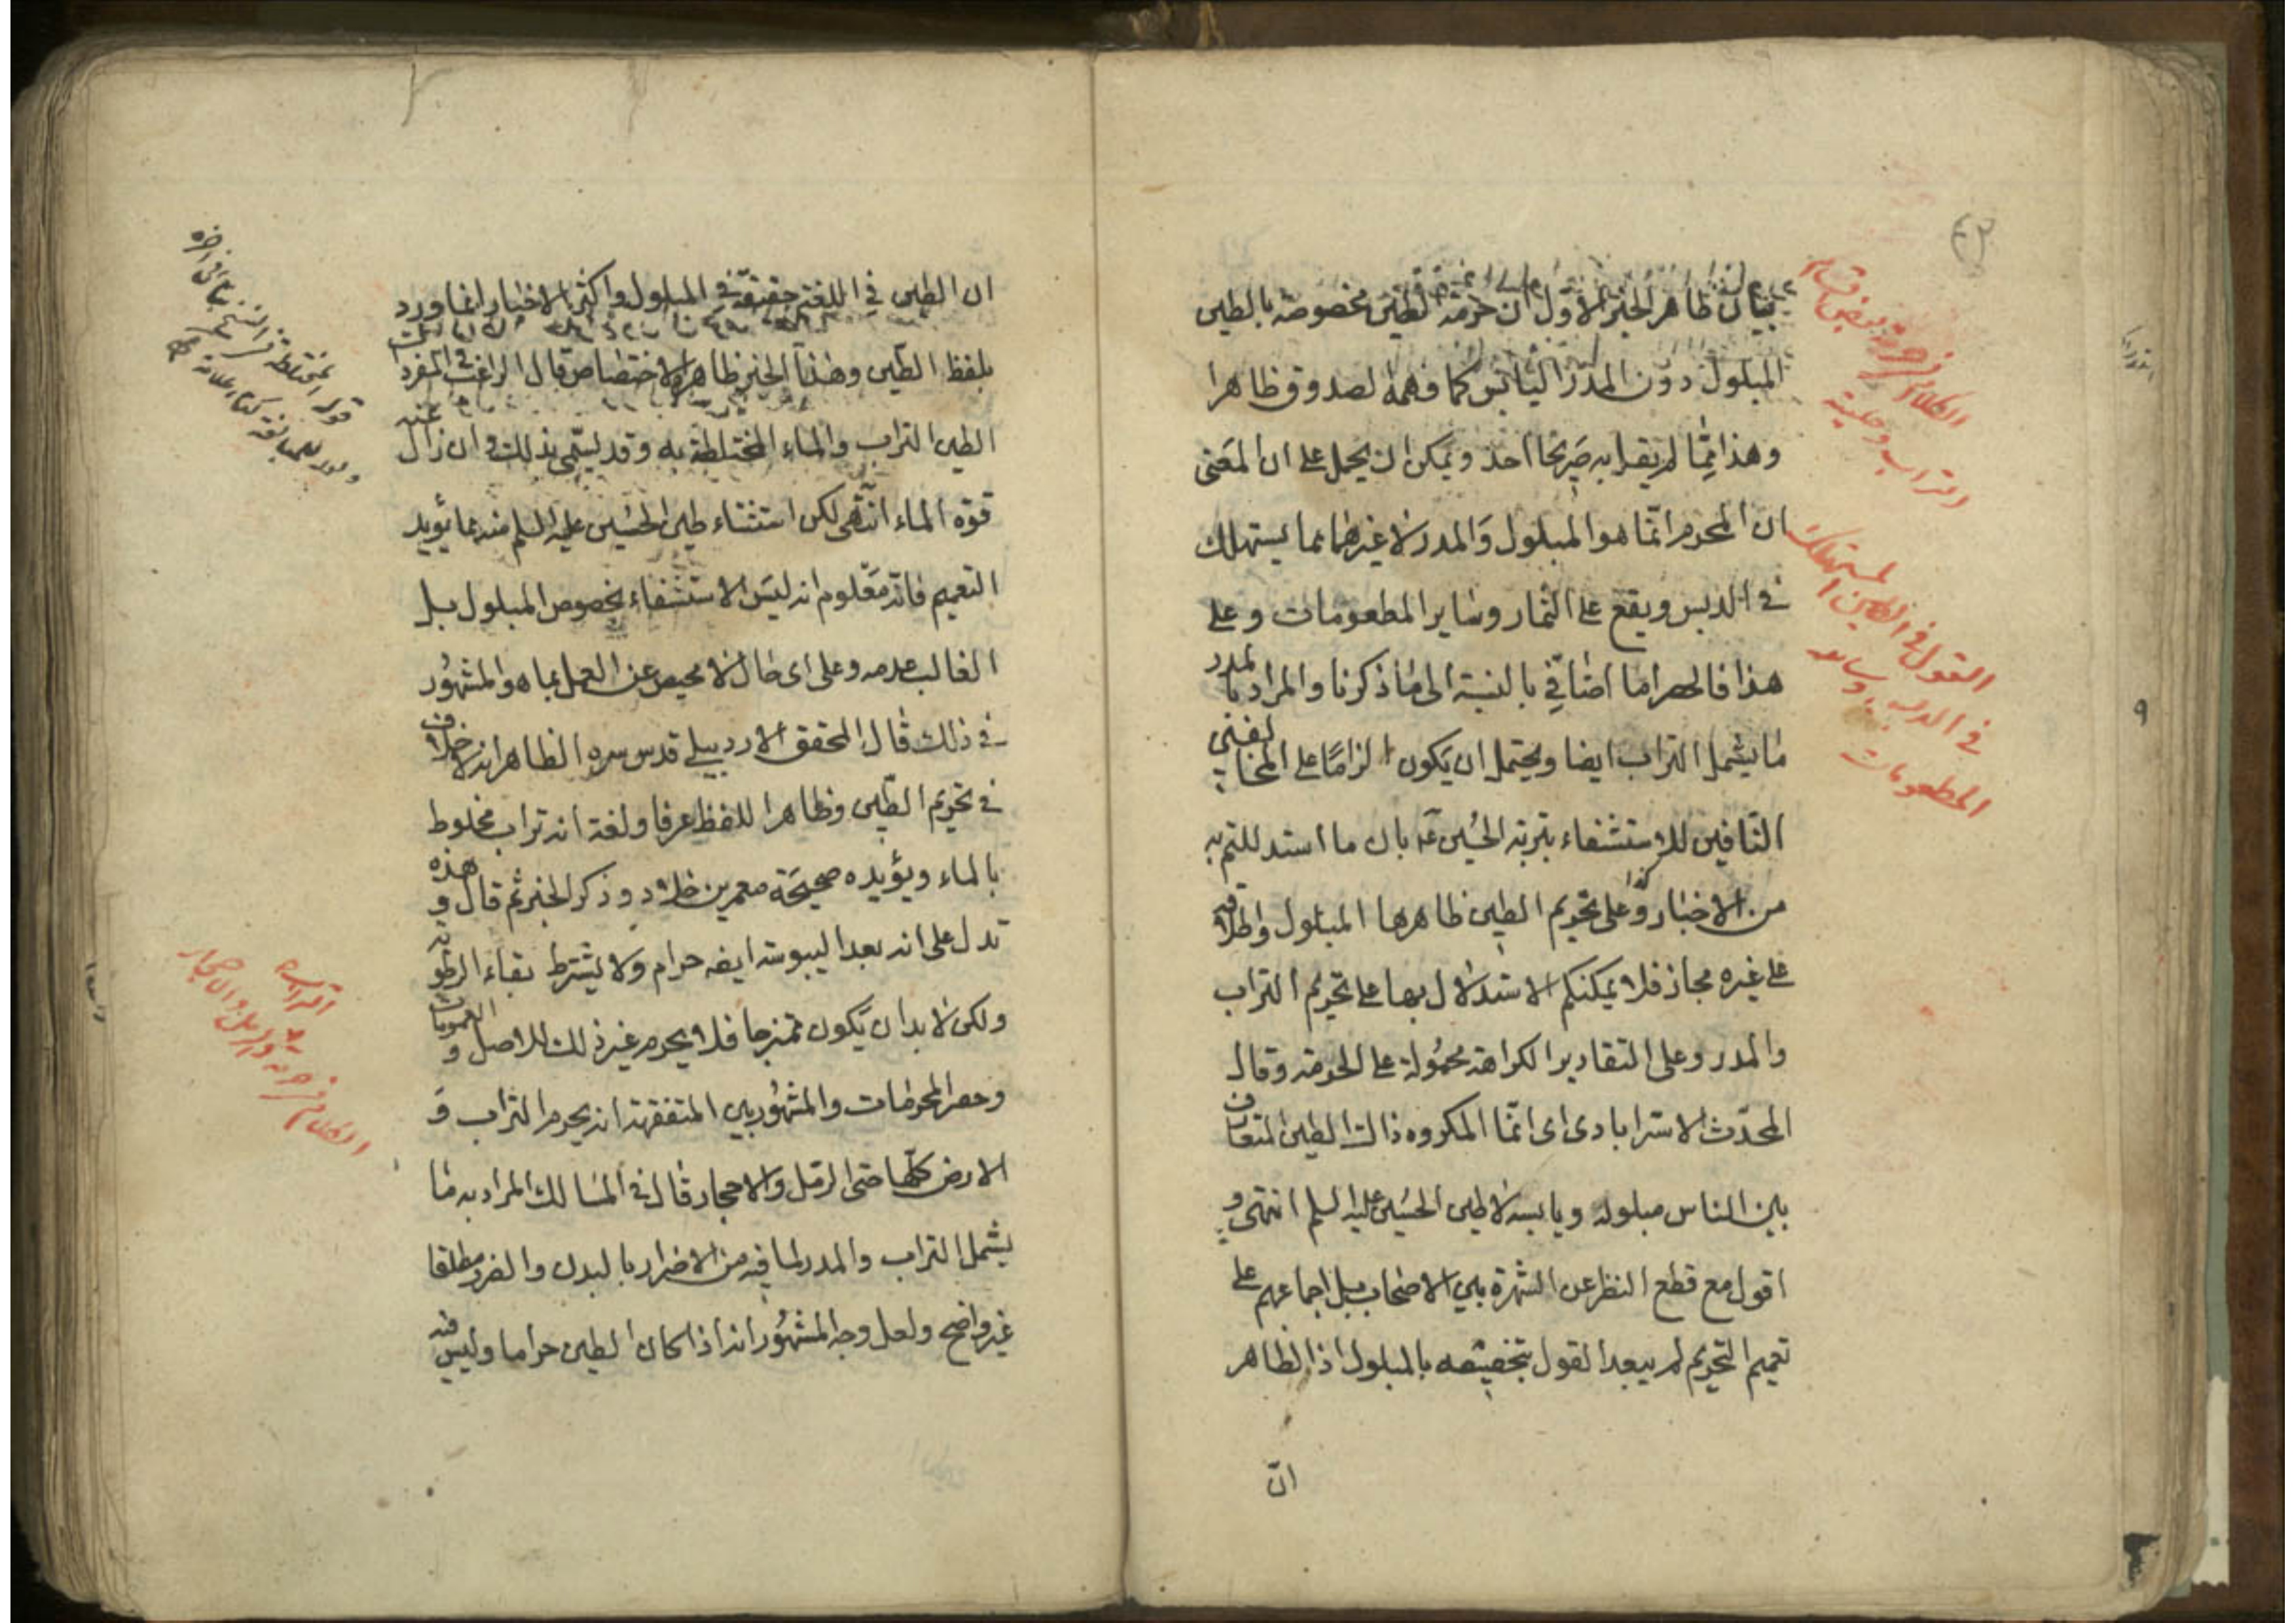 بيان ظاهر الخبر الاول ان حرمة الطين مخصوصة بالطين
المبلول دون المدر اليابس كما فهمه الصدوق ظاهرا
وهذا مما لم يقل به صريحا احد ويمكن ان يحمل على ان المعنى
ان المحرم انما هو المبلول والمدر لا غيرهما مما يستهلك
في الدبس ويقع على الثمار وساير المطعومات وعلى
هذا فالحصر اما اضافي بالنسبة الى ما ذكرنا والمراد بالمدر
ما يشمل التراب ايضا ويحتمل ان يكون الزاما على المخالفين
النافين للاستشفاء بتربة الحسين ع بان ما استدللتم به
من الاخبار على تحريم الطين ظاهرها المبلول واطلاقه
على غيره مجاز فلا يمكنكم الاستدلال بها على تحريم التراب
والمدر وعلى التقادير الكراهة محمولة على الحرمة وقال
المحدث الاسترابادى اى انما المكروه ذاك الطين المتعارف
بين الناس مبلوله ويابسه لا طين الحسين عليه السلم انتهى و
اقول مع قطع النظر عن الشهرة بين الاصحاب بل اجماعهم على
تعميم التحريم لم يبعد القول بتخصيصه بالمبلول اذ الظاهر
ان
الكلام في حرمة بعض
التراب وحلية
القول في الطين المستهلك
في الدبس وساير
المطعومات
ان الطين في اللغة حقيقة في المبلول واكثر الاخبار انما ورد
بلفظ الطين وهذا الخبر ظاهره الاختصاص قال الراغب في المفردات
الطين التراب والماء المختلطة به وقد يسمى بذلك وان زال عنه
قوة الماء انتهى لكن استثناء طين الحسين عليه السلم منه مما يؤيد
التعميم فانه معلوم انه ليس الاستشفاء بخصوص المبلول بل
الغالب عدمه وعلى اى حال لا محيص عن العمل بما هو المشهور
في ذلك قال المحقق الاردبيلى قدس سره الظاهر انه لا خلاف
في تحريم الطين وظاهرا للفظ عرفا ولغة انه تراب مخلوط
بالماء ويؤيده صحيحة معمر بن خلاد وذكر الخبر ثم قال و هذه
تدل على انه بعد اليبوسة ايضه حرام ولا يشترط بقاء الرطوبة
ولكن لا بد ان يكون ممتزجا فلا يحرم غير ذلك للاصل و العمومات
وحصر المحرمات والمشهور بين المتفقهة انه يحرم التراب و
الارض كلها حتى الرمل والاحجار قال في المسالك المراد به ما
يشمل التراب والمدر لما فيه من الاضرار بالبدن والضرر مطلقا
غير واضح ولعل وجه المشهور انه اذا كان الطين حراما وليس فيه
الكلام في حرمة
التراب
والرمل والاحجار